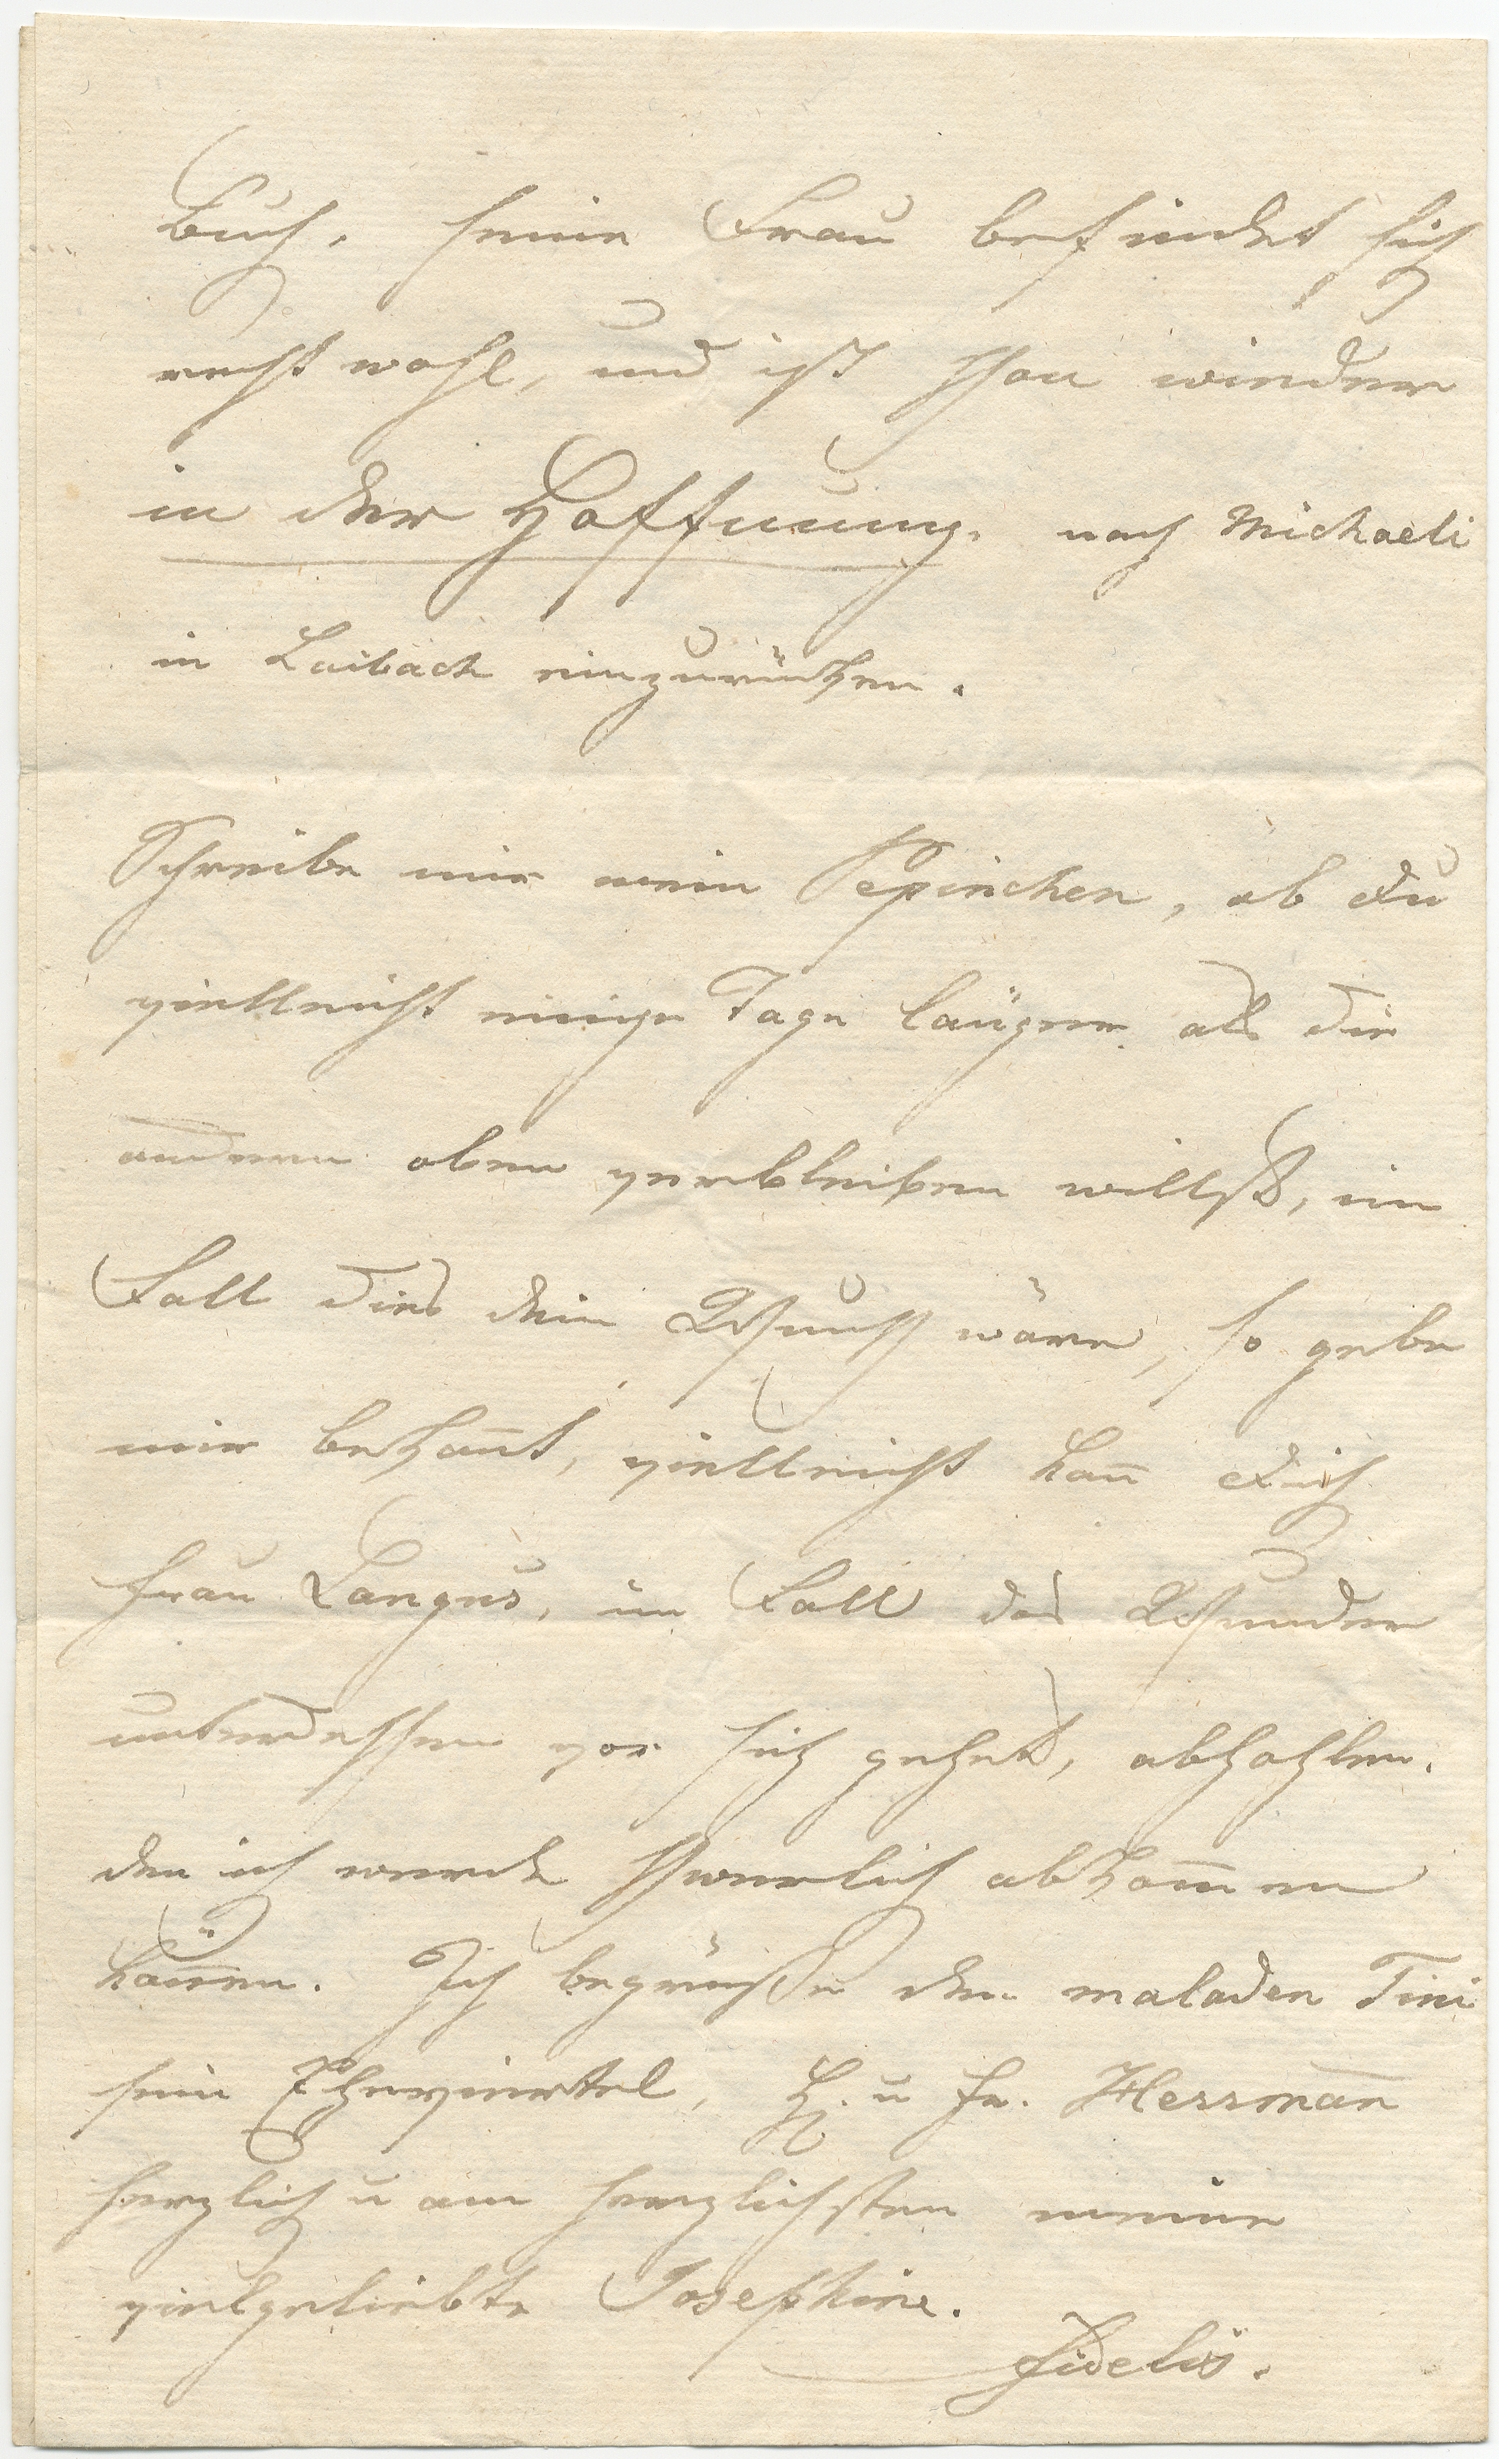 Buch, seine Frau befindet sich
recht wohl, und ist schon wieder
in der Hoffnung, nach Michaeli
in Laibach einzurücken.
Schreibe mir mein Pepinchen, ob du
vielleicht einige Tage länger als die
anderen oben verbleiben willst, im
Fall dies dein Wunsch wäre, so gebe
mir bekan̄t, vielleicht kan̄ dich
Frau Langus, im Fall das Wunder
unterdessen vor sich gehet, abhohlen,
den ich werde schwerlich abkom̄en
kön̄en. Ich begrüße den maladen Tini
sein Eheviertel, H. u Fr. Herrman̄
herzlich u am herzlichsten meine
vielgeliebte Josephine.
Fidelis.